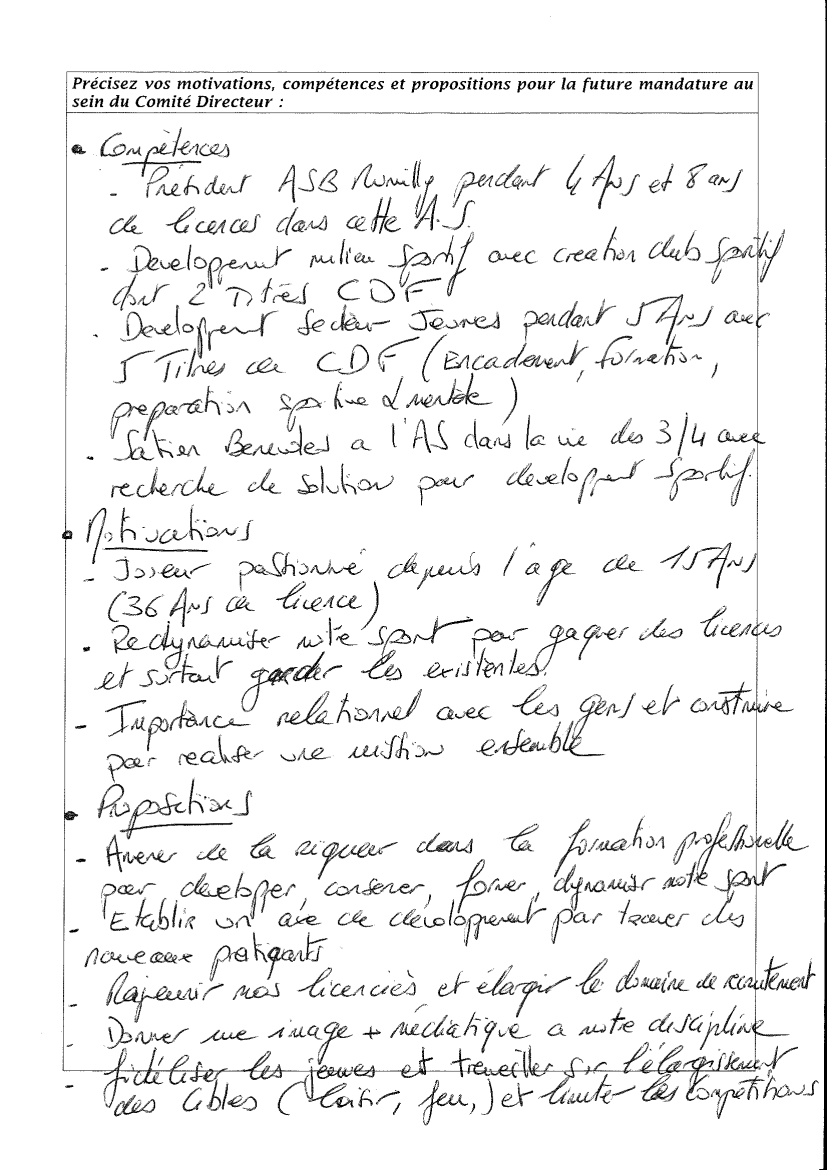 Précisez vos motivations, compétences et propositions pour la future mandature au
sein du Comité Directeur :
• Compétences
- Président ASB Rumilly pendant 4 Ans et 8 ans
de licences dans cette A.S.
- Developpement milieu sportif avec creation club sportif
dont 2 Titres CDF
- Developpent secteur Jeunes pendant 5 Ans avec
5 Titres de CDF (Encadrement, formation,
preparation sportive & mentale)
- Soutien Benevoles a l'AS dans la vie des 3/4 avec
recherche de solution pour developpent sportif.
• Motivations
- Joueur passionné depuis l'age de 15 Ans
(36 Ans de licence)
- Redynamiser notre sport pour gagner des licences
et surtout garder les existentes.
- Importance relationnel avec les gens et construire
pour realiser une mission ensemble
• Propositions
- Amener de la rigueur dans la formation professionelle
pour developper, conserver, former, dynamiser notre sport
- Etablir un axe de developpement par trouver des
nouveaux pratiquants
- Rajeunir nos licenciés et élargir le domaine de recrutement
- Donner une image + médiatique a notre discipline
- fidéliser les jeunes et travailler sur l'élargissement
des cibles (loisir, jeu,) et limiter les compétitions